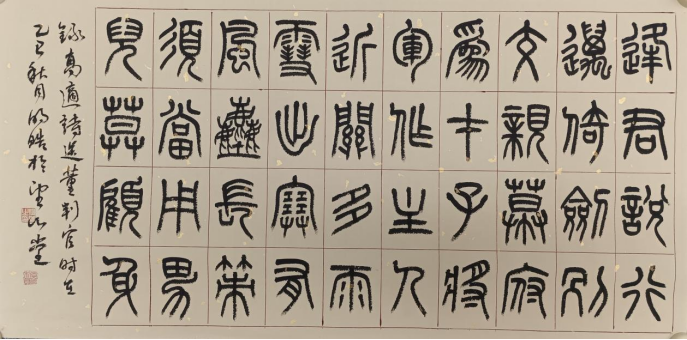 逢君說行
邁倚劍別
交親幕府
爲才子將
軍作主人
近關多雨
雪出塞有
風塵長策
須當用男
兒莫顧身
錄高適詩送董判官時在
乙巳秋月明皓於堂